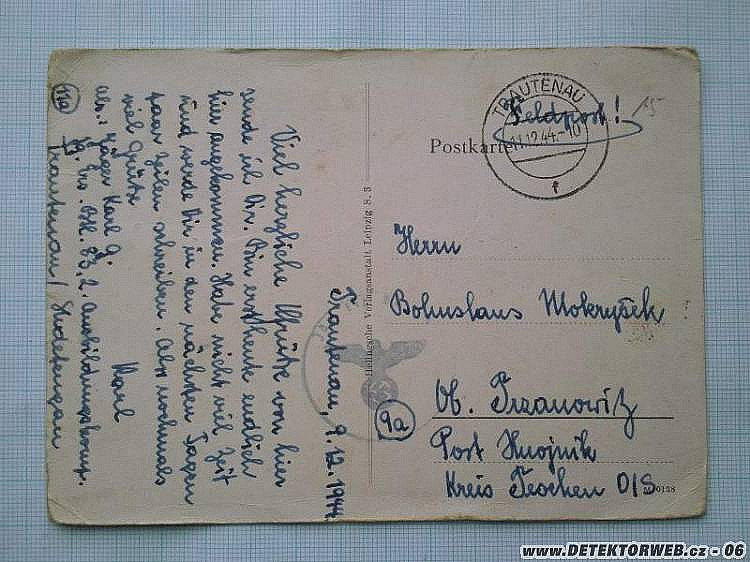 Trautenau, 9.12.1944
Viel herzliche Grüße von hier
sende ich Dir. Bin erst heute endlich
hier angekommen. Habe nicht viel Zeit
und werde Dir in den nächsten Tagen
paar Zeilen schreiben. Also nochmals
viel Grüße
Karl
Abs.: Jäger Karl G.
Ausbildungskomp.
11a
Trautenau / Sudetengau
Hellingsche Verlagsanstalt, Leipzig S. 3
Feldpost!
15
TRAUTENAU
11.12.44.-10
f
Postkarte
Herrn
Bohuslaus Mokryšek
Ob. Trzanowitz
9a
Post Hnojnik
Kreis Teschen O/S
M 0158
www.DETEKTORWEB.cz - 06